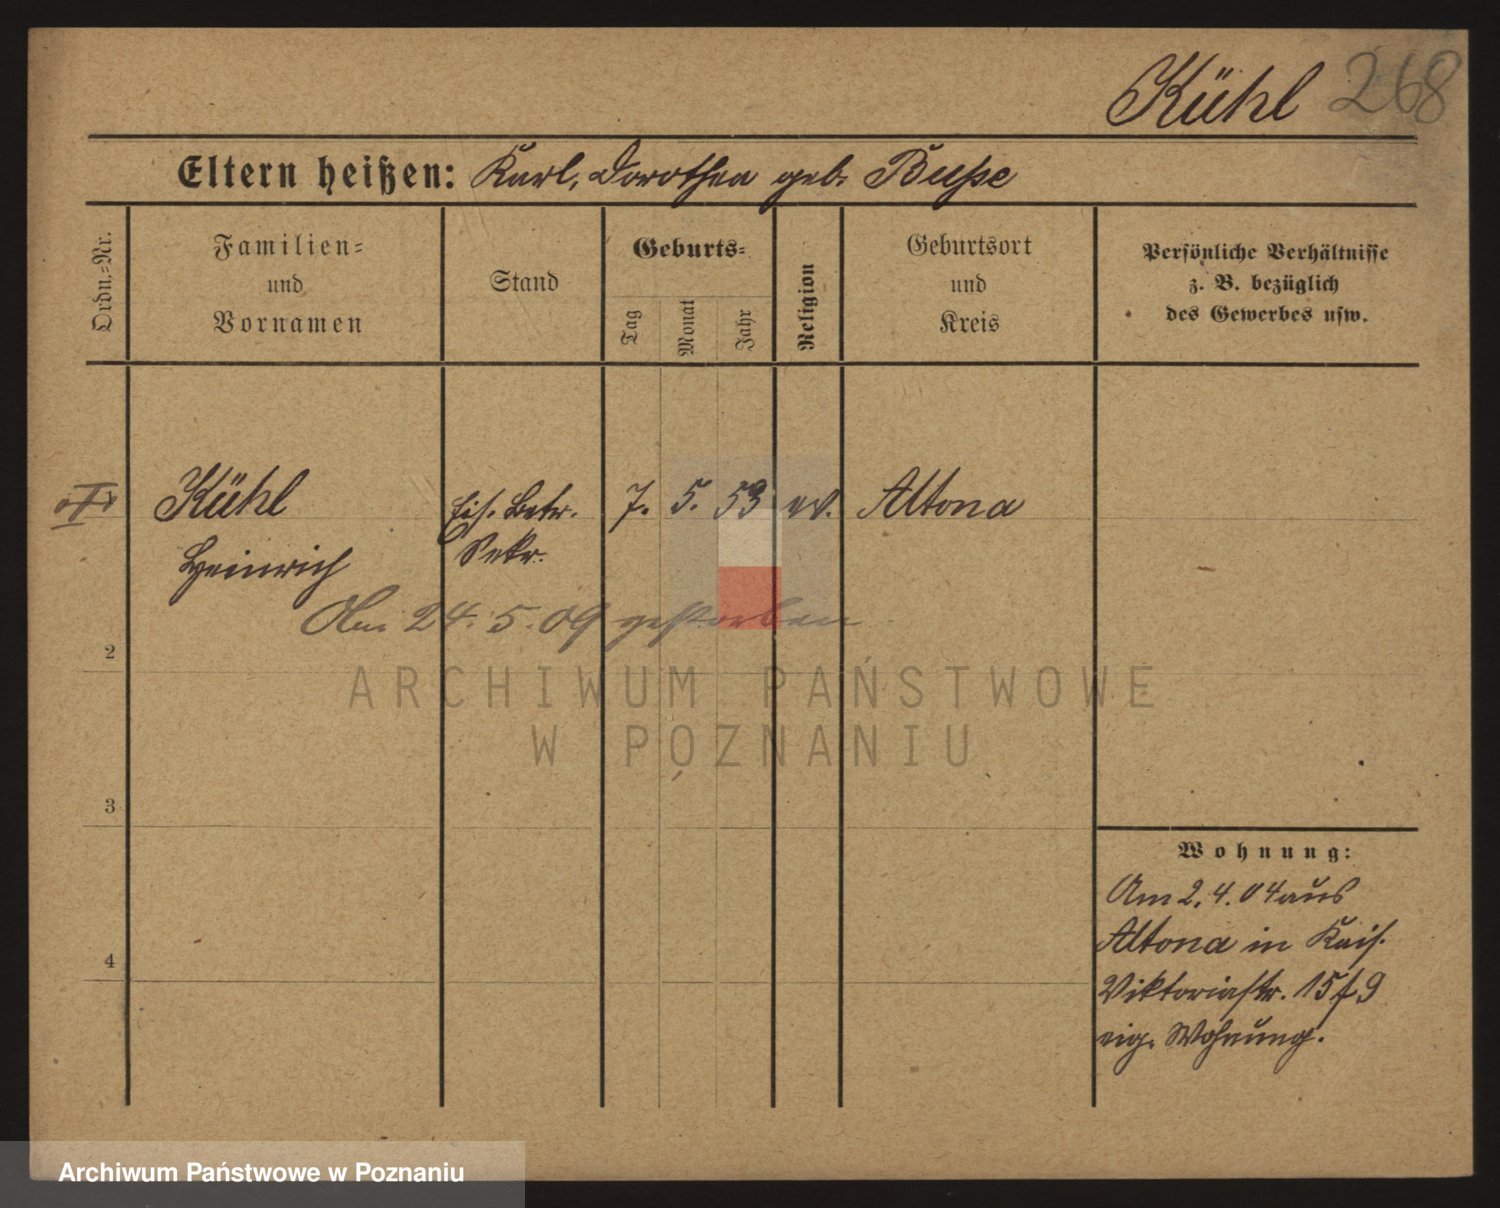 Kühl 268
Eltern heißen: Karl, Dorothea geb. Buße
Ordn.-Nr.
Familien-
und
Vornamen
Stand
Geburts-
Tag
Monat
Jahr
Religion
Geburtsort
und
Kreis
Persönliche Verhältnisse
z. B. bezüglich
des Gewerbes usw.
Kühl Eis. Betr. 7. 5. 53 ev. Altona
Heinrich Sekr.
Am 24. 5. 09 gestorben
2
ARCHIWUM PAŃSTWOWE
W POZNANIU
3
Wohnung:
Am 2. 4. 04 aus
Altona in Kais.
4
Viktoriastr. 15 f 9
eig. Wohnung.
Archiwum Państwowe w Poznaniu